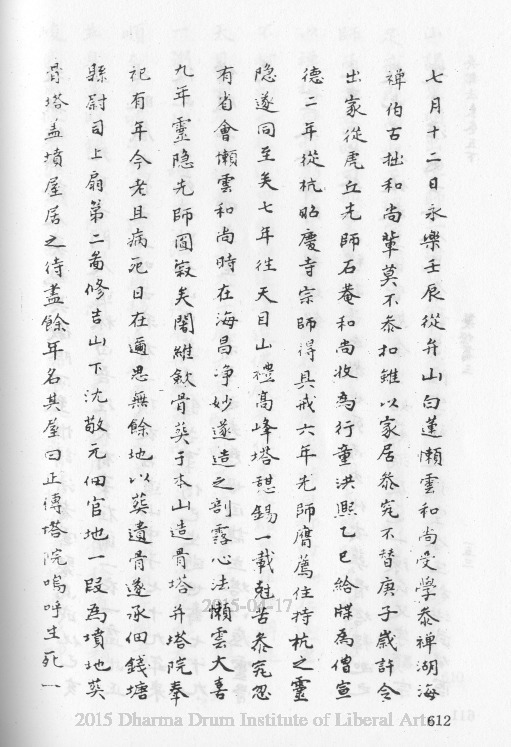 七月十二日永樂壬辰從弁山白蓮懶雲和尚受學參禪湖海
禪伯古拙和尚輩莫不參扣雖以家居參究不替庚子歲許令
出家從虎丘先師石菴和尚收為行童洪熙乙巳給牒為僧宣
德二年從杭昭慶寺宗師得具戒六年先師膺薦住持杭之靈
隐遂同至矣七年往天目山禮高峰塔憇錫一載尅苦參究忽
有省會懶雲和尚時在海昌净妙遂造之剖露心法懶雲大喜
九年靈隐先師圓寂矣闍維歛骨葵于本山造骨塔并塔院奉
祀有年今老且病死日在邇思無餘地以葵遺骨遂承佃錢塘
縣尉司上扇第二啚修吉山下沈敬元佃官地一段為墳地葵
骨塔盖墳屋居之待盡餘年名其屋曰正傳塔院嗚呼生死一
2015-04-17
2015 Dharma Drum Institute of Liberal Arts
612